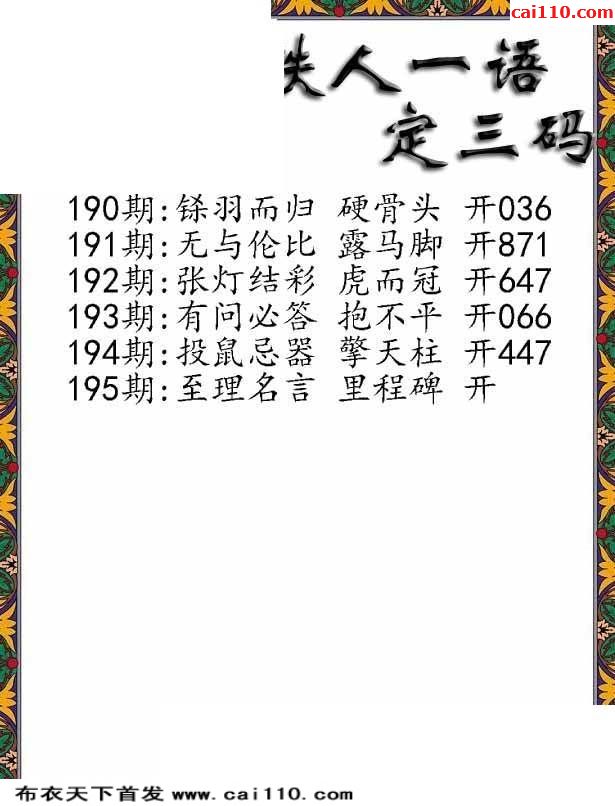 cai110.com
人一语
定三码
190期:铩羽而归 硬骨头 开036
191期:无与伦比 露马脚 开871
192期:张灯结彩 虎而冠 开647
193期:有问必答 抱不平 开066
194期:投鼠忌器 擎天柱 开447
195期:至理名言 里程碑 开
布衣天下首发 www.cai110.com